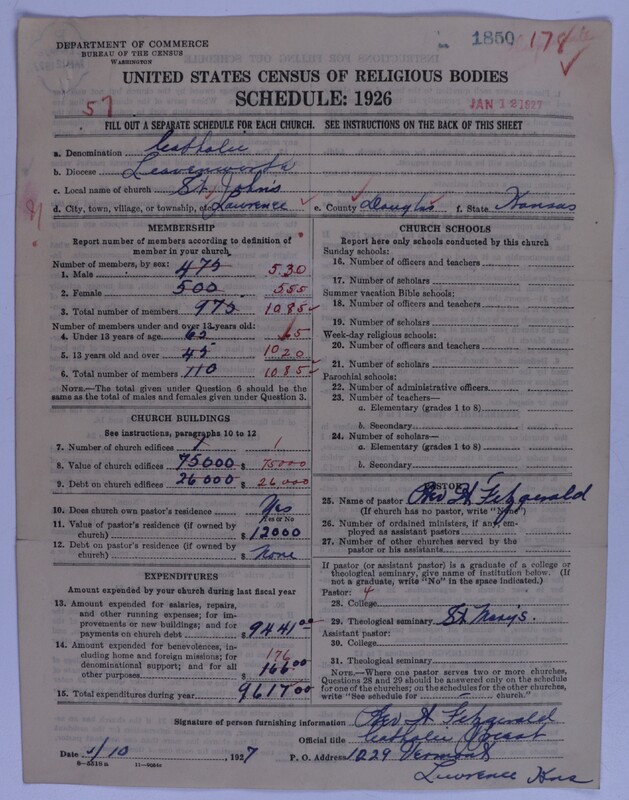 DEPARTMENT OF COMMERCE
BUREAU OF THE CENSUS
WASHINGTON
1850 178
UNITED STATES CENSUS OF RELIGIOUS BODIES
SCHEDULE: 1926
57
JAN 12 1927
FILL OUT A SEPARATE SCHEDULE FOR EACH CHURCH. SEE INSTRUCTIONS ON THE BACK OF THIS SHEET
a. Denomination Catholic
b. Diocese Leavenworth
c. Local name of church St. John's
d. City, town, village, or township, etc. Lawrence e. County Douglas f. State Kansas
MEMBERSHIP
Report number of members according to definition of member in your church.
Number of members, by sex:
1. Male 475 530
2. Female 500 555
3. Total number of members 975 1085
Number of members under and over 13 years old:
4. Under 13 years of age 65 65
5. 13 years old and over 45 1020
6. Total number of members 110 1085
NOTE.—The total given under Question 6 should be the same as the total of males and females given under Question 3.
CHURCH BUILDINGS
See instructions, paragraphs 10 to 12
7. Number of church edifices 1 1
8. Value of church edifices 75000 $ 75000
9. Debt on church edifices 26000 $ 26000
10. Does church own pastor's residence? Yes
Yes or No
11. Value of pastor's residence (if owned by church) $ 12000
12. Debt on pastor's residence (if owned by church) $ None
EXPENDITURES
Amount expended by your church during last fiscal year
13. Amount expended for salaries, repairs, and other running expenses; for improvements or new buildings; and for payments on church debt $ 9441 00
14. Amount expended for benevolences, including home and foreign missions; for denominational support; and for all other purposes 176 $ 166 00
15. Total expenditures during year 9617 00
CHURCH SCHOOLS
Report here only schools conducted by this church
Sunday schools:
16. Number of officers and teachers
17. Number of scholars
Summer vacation Bible schools:
18. Number of officers and teachers
19. Number of scholars
Week-day religious schools:
20. Number of officers and teachers
21. Number of scholars
Parochial schools:
22. Number of administrative officers
23. Number of teachers—
a. Elementary (grades 1 to 8)
b. Secondary
24. Number of scholars—
a. Elementary (grades 1 to 8)
b. Secondary
PASTOR
25. Name of pastor Rev A Fitzgerald
(If church has no pastor, write "None")
26. Number of ordained ministers, if any, employed as assistant pastors
27. Number of other churches served by the pastor or his assistants
If pastor (or assistant pastor) is a graduate of a college or theological seminary, give name of institution below. (If not a graduate, write "No" in the space indicated.)
Pastor: 4
28. College
29. Theological seminary St Mary's.
Assistant pastor:
30. College
31. Theological seminary
NOTE.—Where one pastor serves two or more churches, Questions 28 and 29 should be answered only on the schedule for one of the churches; on the schedules for the other churches, write "See schedule for church."
Signature of person furnishing information Rev A Fitzgerald
Official title Catholic Priest
Date 1/10 1927 P. O. Address 1229 Vermont
Lawrence Kns
8-5518a 11-9084